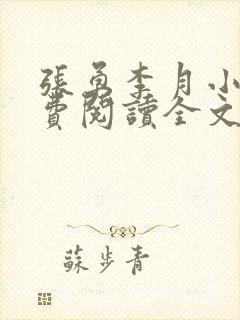 張勇李月小
費閱讀全文
蘇步青